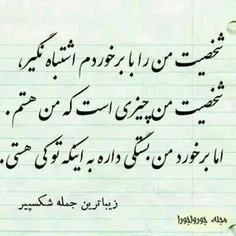 شخصیت من را با برخوردم اشتباه نگیر،
شخصیت من چیزی است که من هستم.
اما برخورد من بستگی داره به اینکه تو کی هستی.
زیباترین جمله شکسپیر
مجله جورواجورا